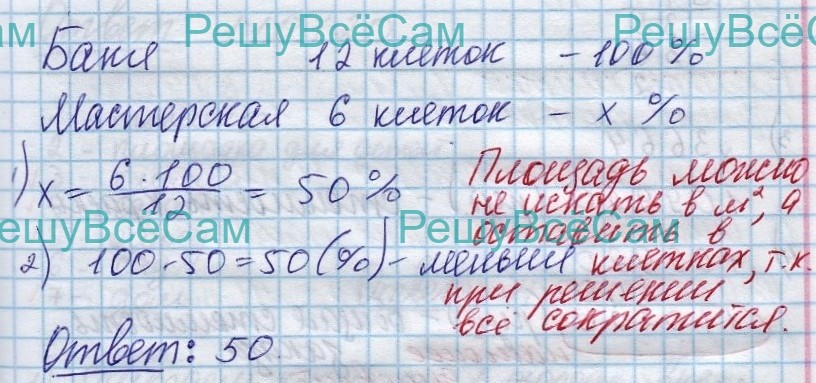 РешуВсёСам
Баня 12 клеток - 100%
Мастерская 6 клеток - x %
1) x = 6 · 100 / 12 = 50%
Площадь можно
не искать в м², а
оставить в
клетках, т.к.
при решении
всё сократится.
ешуВсёСам РешуВсёСам
2) 100 - 50 = 50 (%) - меньше
Ответ: 50.